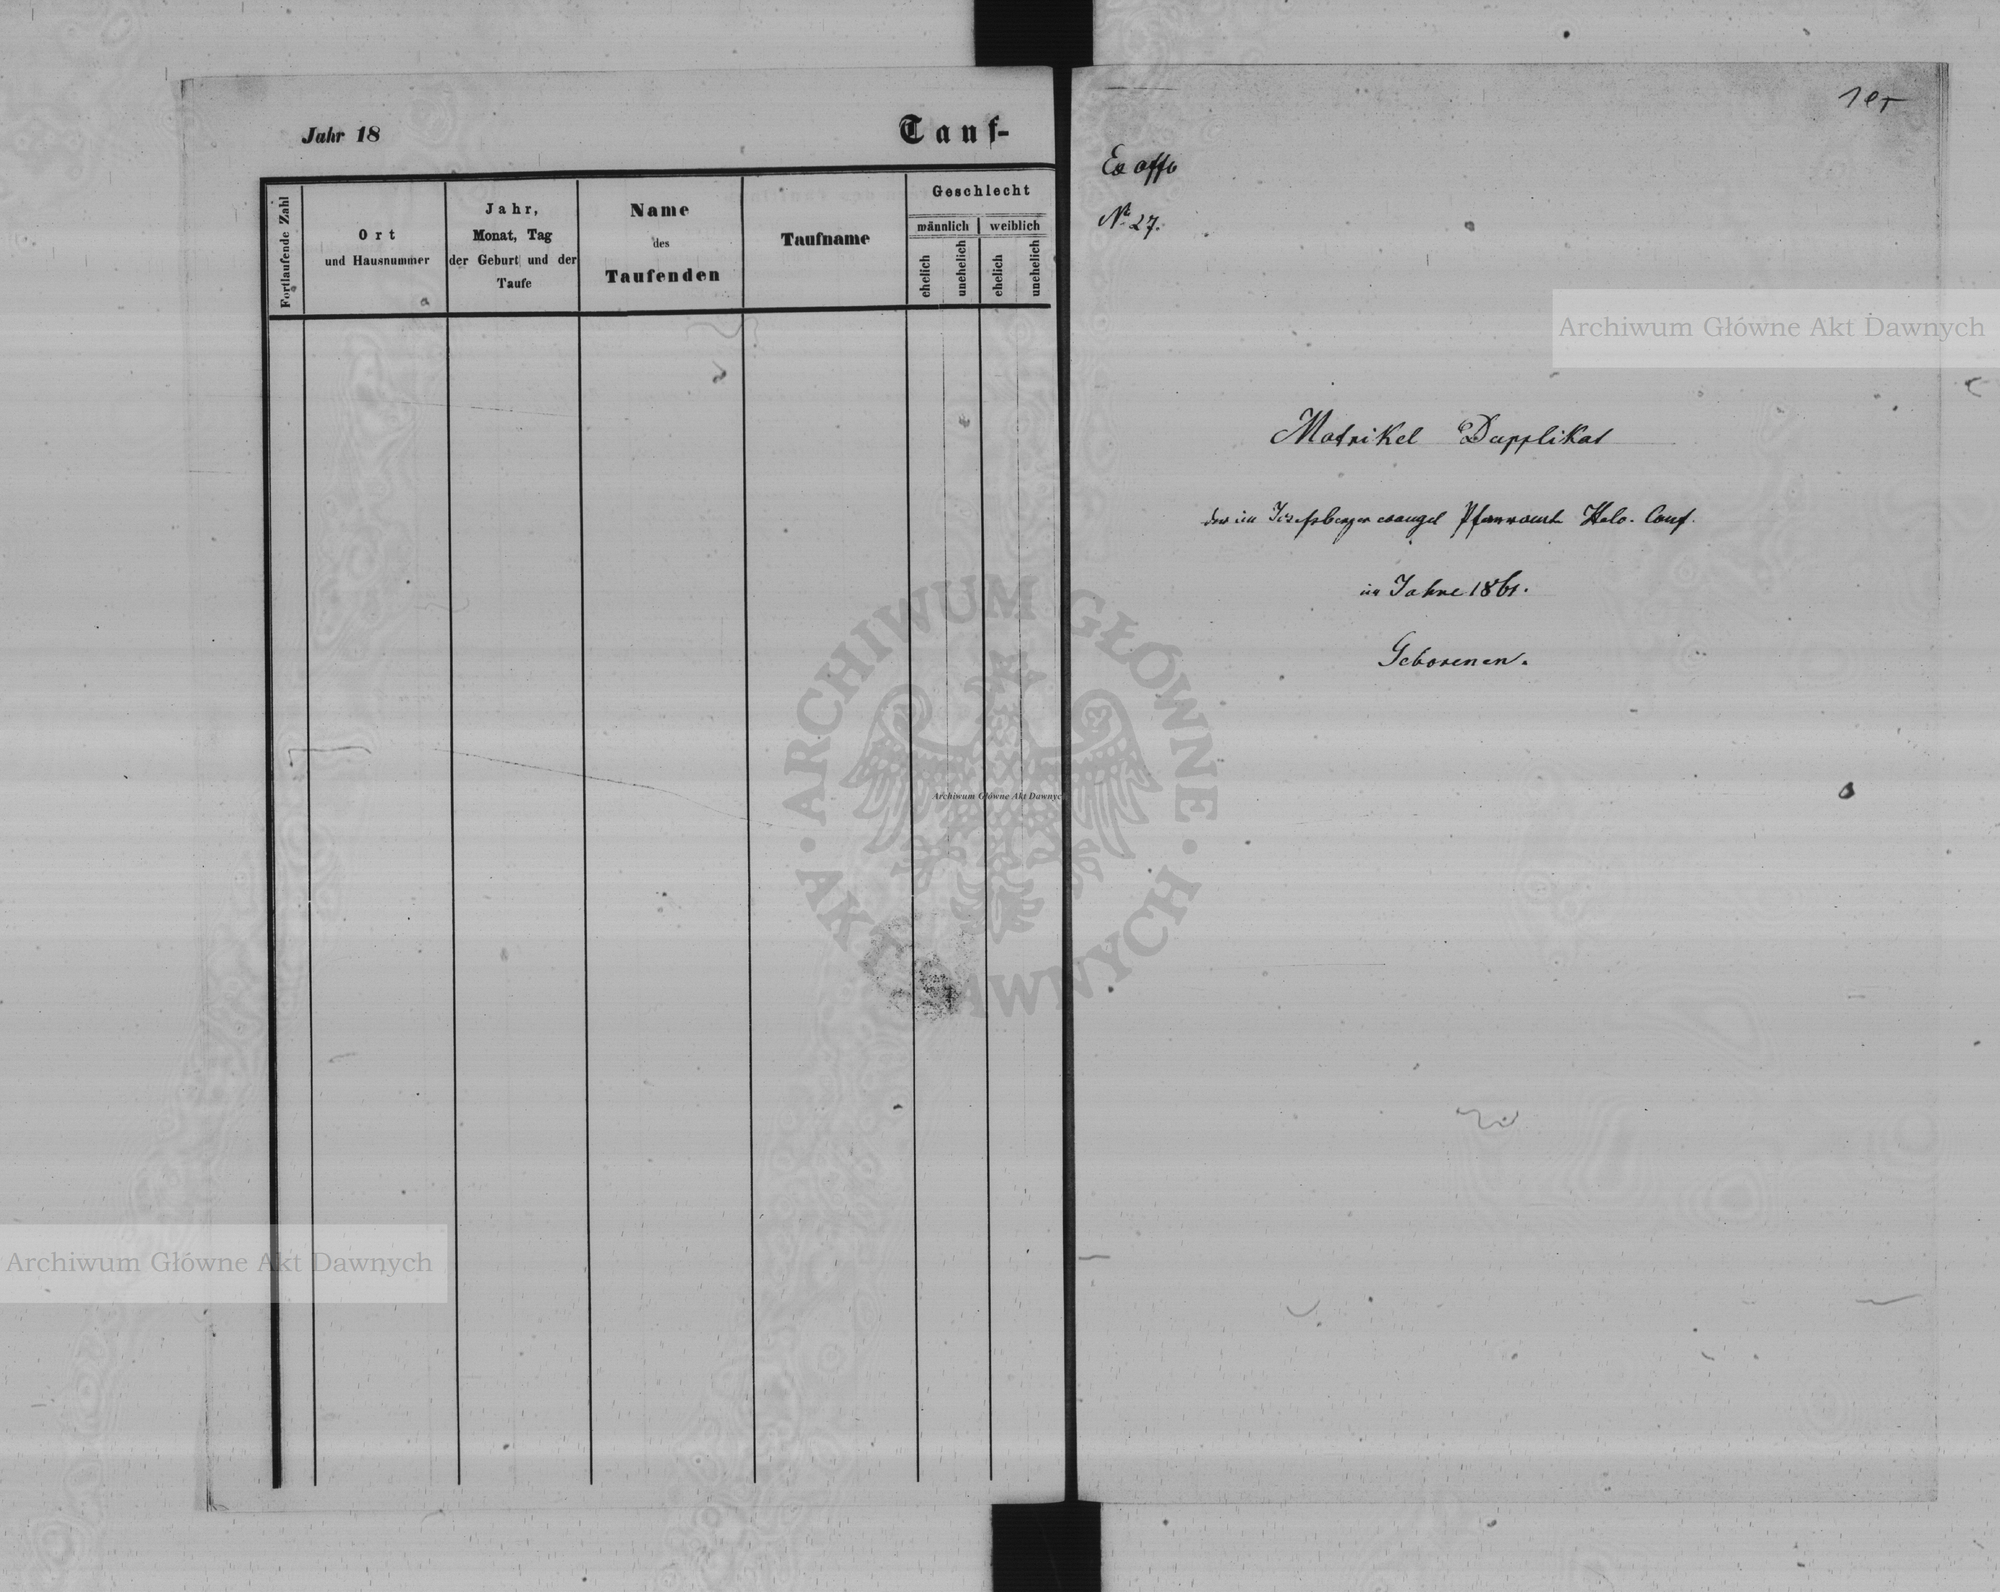 Jahr 18
Tauf-
Fortlaufende Zahl
Ort
und Hausnummer
Jahr,
Monat, Tag
der Geburt und der
Taufe
Name
des
Taufenden
Taufname
Geschlecht
männlich
weiblich
ehelich
unehelich
ehelich
unehelich
Ex offo
№ 27.
Matrikel Dupplikat
der im Josefsberger evangel Pfarramte Helv. Conf.
im Jahre 1861.
Geborenen.
Archiwum Główne Akt Dawnych
ARCHIWUM GŁÓWNE AKT DAWNYCH
Archiwum Główne Akt Dawnych
Archiwum Główne Akt Dawnych